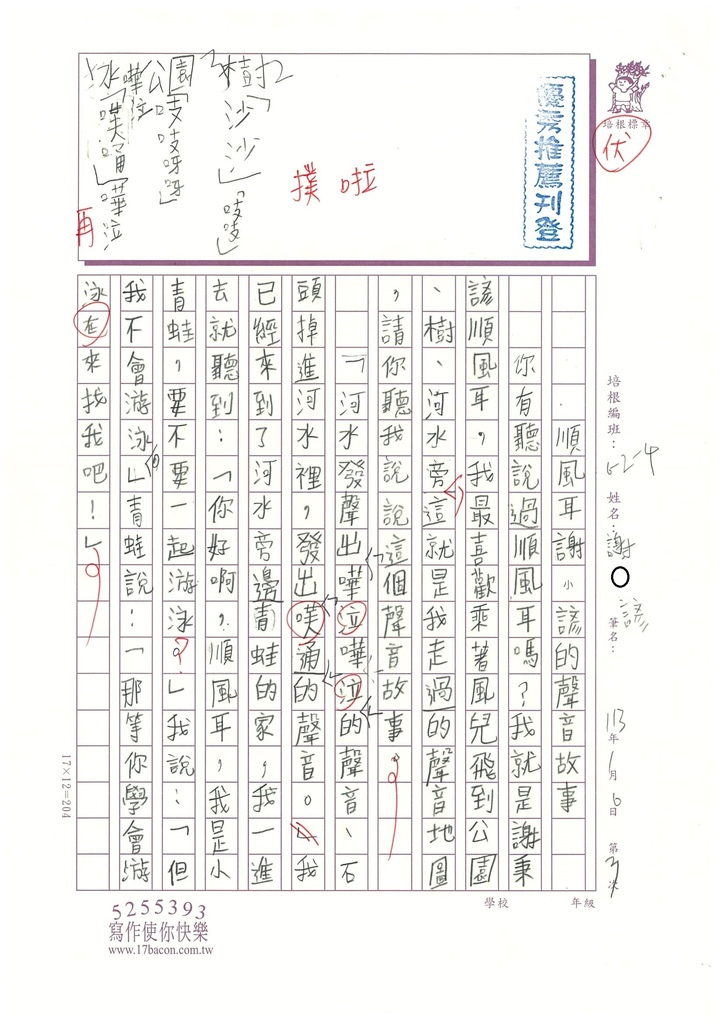 培根標章
伏
優秀推薦刊登
樹
「沙沙」「吱吱」
公園
「吱吱呀呀」
嘩泣
「噗通」嘩泣
撲啦
再
培根編班：G2-4
姓名：謝○諺
筆名：
113年1月6日第3次
年級
學校
順風耳謝小諺的聲音故事
你有聽說過順風耳嗎？我就是謝秉
諺順風耳，我最喜歡乘著風兒飛到公園
、樹、河水旁這就是我走過的聲音地圖
，請你聽我說說這個聲音故事。
「河水發聲出嘩泣嘩泣的聲音、石
頭掉進河水裡，發出噗通的聲音。」我
已經來到了河水旁邊青蛙的家，我一進
去就聽到：「你好啊，順風耳，我是小
青蛙，要不要一起游泳？」我說：「但
我不會游泳」青蛙說：「那等你學會游
泳在來找我吧！」
17×12=204
5255393
寫作使你快樂
www.17bacon.com.tw